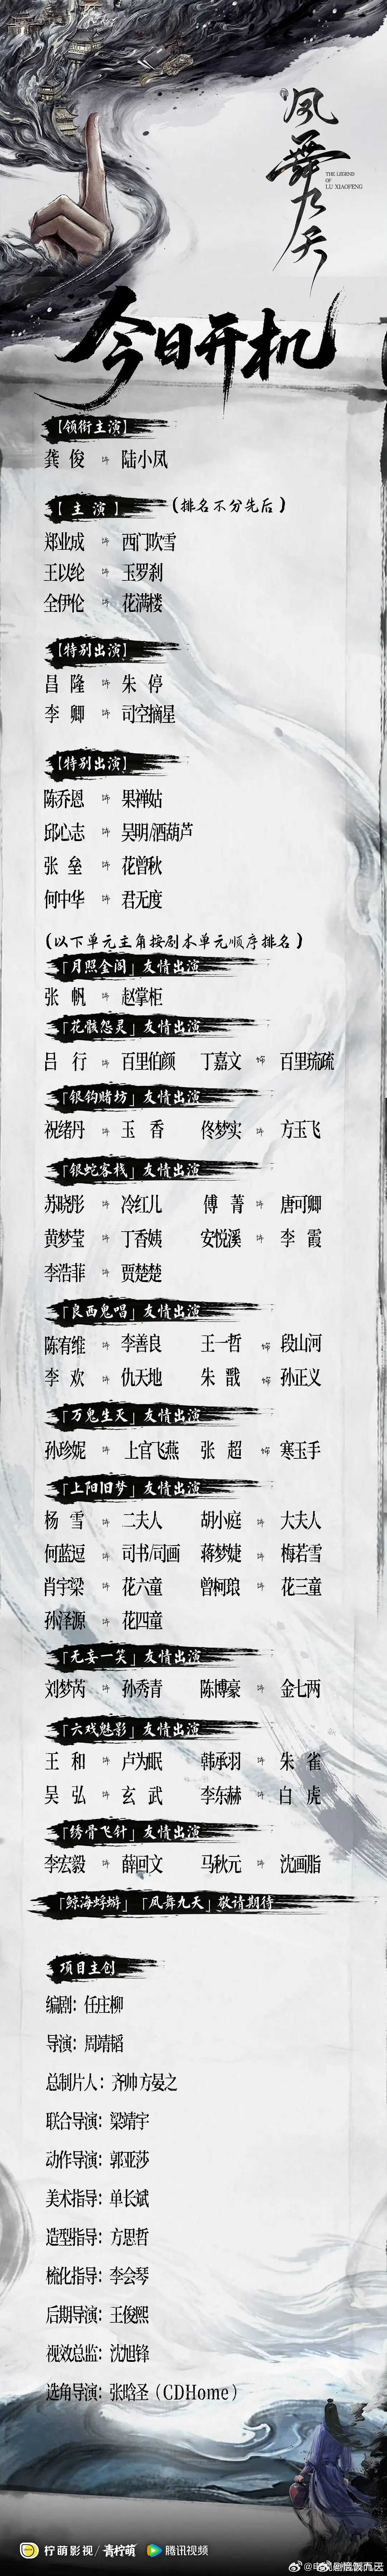 凤舞九天
THE LEGEND
OF
LU XIAOFENG
今日开机
【领衔主演】
龚 俊 饰 陆小凤
【主 演】 (排名不分先后)
郑业成 饰 西门吹雪
王以纶 饰 玉罗刹
全伊伦 饰 花满楼
【特别出演】
昌 隆 饰 朱 停
李 卿 饰 司空摘星
【特别出演】
陈乔恩 饰 果禅姑
邱心志 饰 吴明/洒葫芦
张 垒 饰 花曾秋
何中华 饰 君无度
(以下单元主角按剧本单元顺序排名)
「月照金阁」友情出演
张 帆 饰 赵掌柜
「花骸怨灵」友情出演
吕 行 饰 百里伯颜 丁嘉文 饰 百里琉疏
「银钩赌坊」友情出演
祝绪丹 饰 玉 香 佟梦实 饰 方玉飞
「银蛇客栈」友情出演
苏晓彤 饰 冷红儿 傅 菁 饰 唐可卿
黄梦莹 饰 丁香姨 安悦溪 饰 李 霞
李浩菲 饰 贾楚楚
「良西鬼唱」友情出演
陈宥维 饰 李善良 王一哲 饰 段山河
李 欢 饰 仇天地 朱 戬 饰 孙正义
「万鬼生天」友情出演
孙珍妮 饰 上官飞燕 张 超 饰 寒玉手
「上阳旧梦」友情出演
杨 雪 饰 二夫人 胡小庭 饰 大夫人
何蓝逗 饰 司书/司画 蒋梦婕 饰 梅若雪
肖宇梁 饰 花六童 曾柯琅 饰 花三童
孙泽源 饰 花四童
「无妄一笑」友情出演
刘梦芮 饰 孙秀青 陈博豪 饰 金七两
「六戏魅影」友情出演
王 和 饰 卢为眠 韩承羽 饰 朱 雀
吴 弘 饰 玄 武 李东赫 饰 白 虎
「绣骨飞针」友情出演
李宏毅 饰 薛可文 马秋元 饰 沈画脂
「鲸海蜉蝣」「凤舞九天」敬请期待
项目主创
编剧：任庄柳
导演：周靖韬
总制片人：齐帅 方晏之
联合导演：梁靖宇
动作导演：郭亚莎
美术指导：单长斌
造型指导：方思哲
梳化指导：李会琴
后期导演：王俊熙
视效总监：沈旭锋
选角导演：张晗圣（CDHome）
柠萌影视/青柠萌 腾讯视频